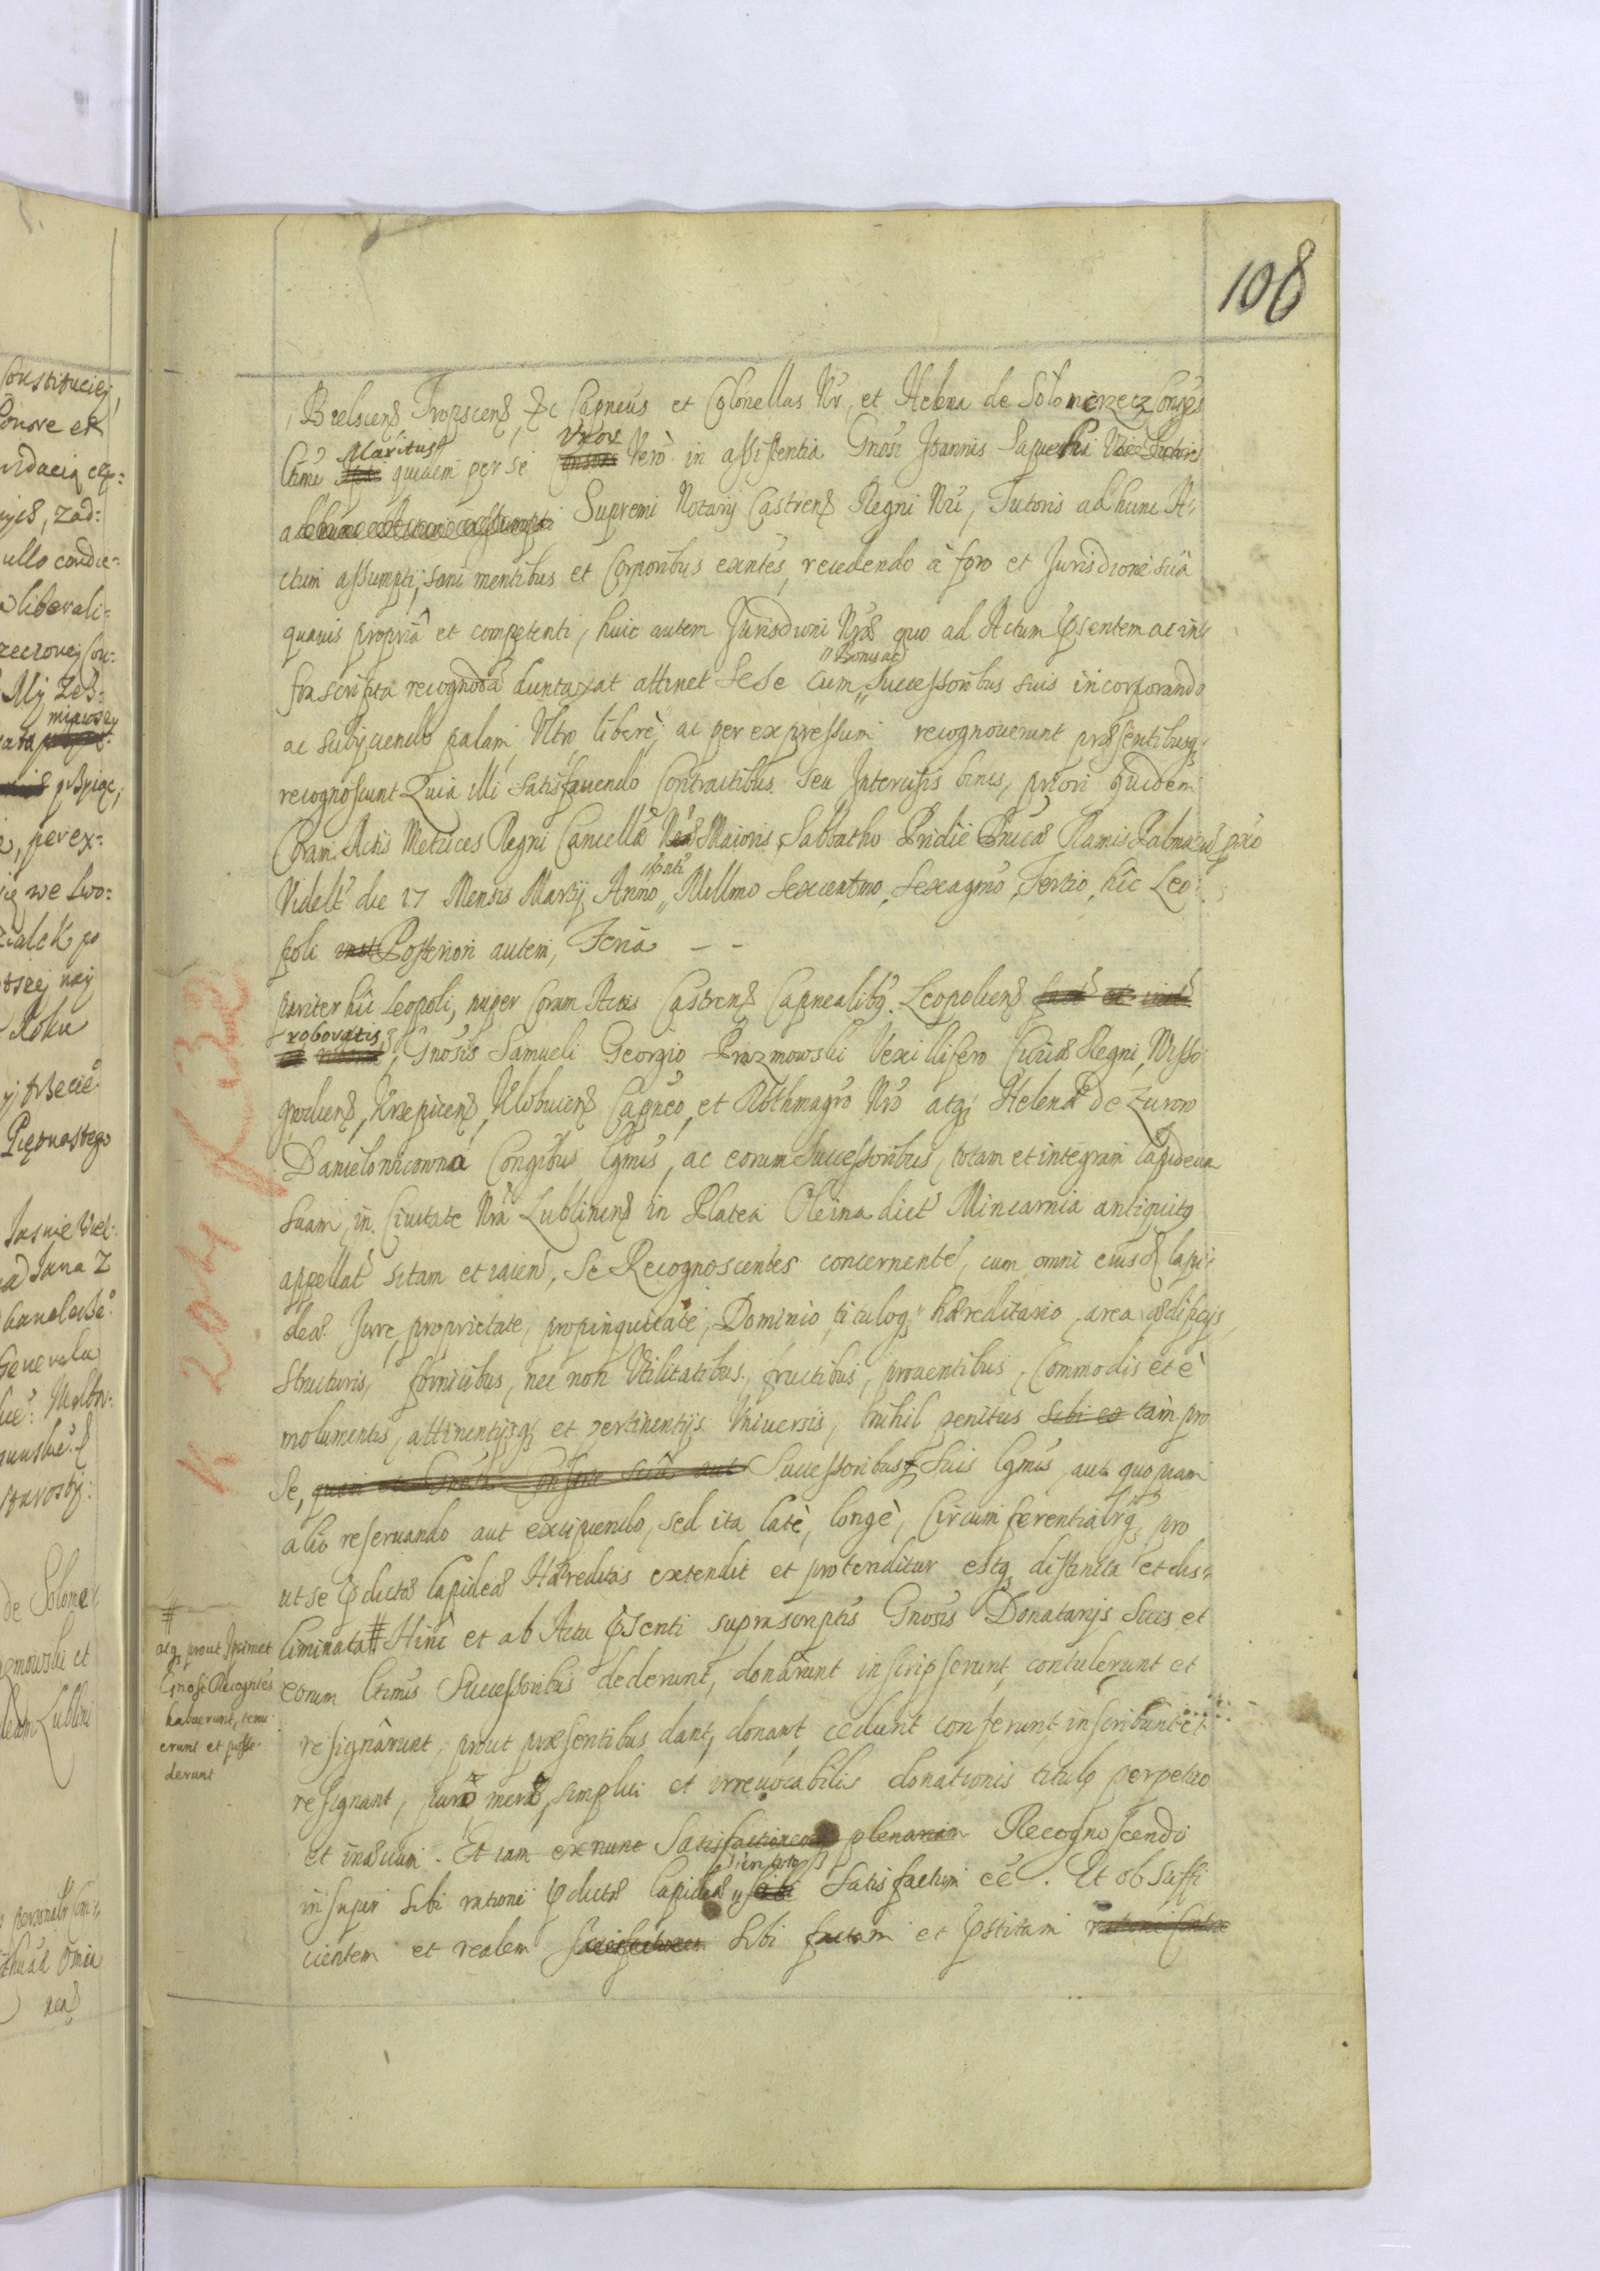 108
Brelscens Tropscens &c Capneus et Colonellus Nr, et Helena de Solomerecz Conges
Ltimi Maritus quidem per se Uxor Vero in assistentia Gnosi Joannis Sapieha
Supremi Notarij Castrens Regni Nri, Tutoris ad hunc A-
ctum assumpti, sani mentibus et Corporibus exntes, recedendo à foro et Jurisdione suâ
quavis propriâ et competenti, huic autem Jurisdioni Nræ quo ad Actum psentem ac in-
frascripta recognoda duntaxat attinet Sese cum "Bonis ac" Successoribus suis incorporando
ac subijciendo palam, Ultro liberè, ac per expressum recognoverunt præsentibusq
recognoscunt Quia illi satisfaciendo Contractibus seu Intercisis binis, priori quidem
Coram Actis Metrices Regni Cancellæ Maioris, Sabbatho Pridie Dnicæ Ramis Palmarum pxio
Videlt die 17 Mensis Martij Anno "pnti" Millmo Sexcentmo, Sexagmo Tertio, hîc Leo-
poli Posteriori autem, Feria - -
pariter hîc Leopoli, nuper Coram Actis Castrens Capnealibq Leopoliens
robovatis, Gnosis Samueli Georgio Prazmowski Vexillifero Curiæ Regni, Wisso
grodiens, Krzepicens, Klobuciens Capneo, et Rothmagro Nro atq Helenæ de Zurow
Danielowiczowna Congibus Lgmis, ac eorum Successoribus, totam et integram lapideam
suam, in Civitate Nrâ Lublinens in Platea Oleina dict Mincarnia antiquitq
appellat sitam et iacen, Se Recognoscentes concernente, cum omni eiusd lapi-
deæ Jure, proprietate, propinquitate, Dominio, tituloq hæreditario, area ædificijs,
structuris, fornicibus, nec non Utilitatibus, fructibus, proventibus, Commodis et è
molumentis, attinentijsq et pertinentijs Universis, nihil penitus sibi eo tam pro
Se, Successoribusq Suis Lgmis, aut quopiam
alio reservando aut excipiendo, sed ita latè, longè, Circumferentialrq, pro
ut se pdicta lapidea Hæreditas extendit et protenditur estq distincta et dis-
liminata # Hinc et ab Actu psenti suprascriptis Gnosis Donatarijs Suis et
eorum ltimis Successoribus dederunt, donârunt inscripserunt, contulerunt et
resignârunt, prout præsentibus dant, donant, cedunt conferunt, inscribunt et
resignant, puræ meræ, simplici et irrevocabilis donationis titulo perpetuo
et inævum. Et iam exnunc Satisfactionem plenariam Recognoscendo
insuper sibi ratione pdictæ lapideæ satisfactum eê. Et ob suffi
cientem et realem sibi factam et pstitam
#
atq prout Ipsimet
Gnosi Recognes
habuerunt, tenu-
erunt et posse-
derunt
Constituciej
zad:
ullo condic-
liberali-
My
miawszy
perex-
Roku
Piętnastego
Jasnie Wiel:
Jana Z
Generala
Starosty:
de Solome
Prazmowski et
Lublini
omia